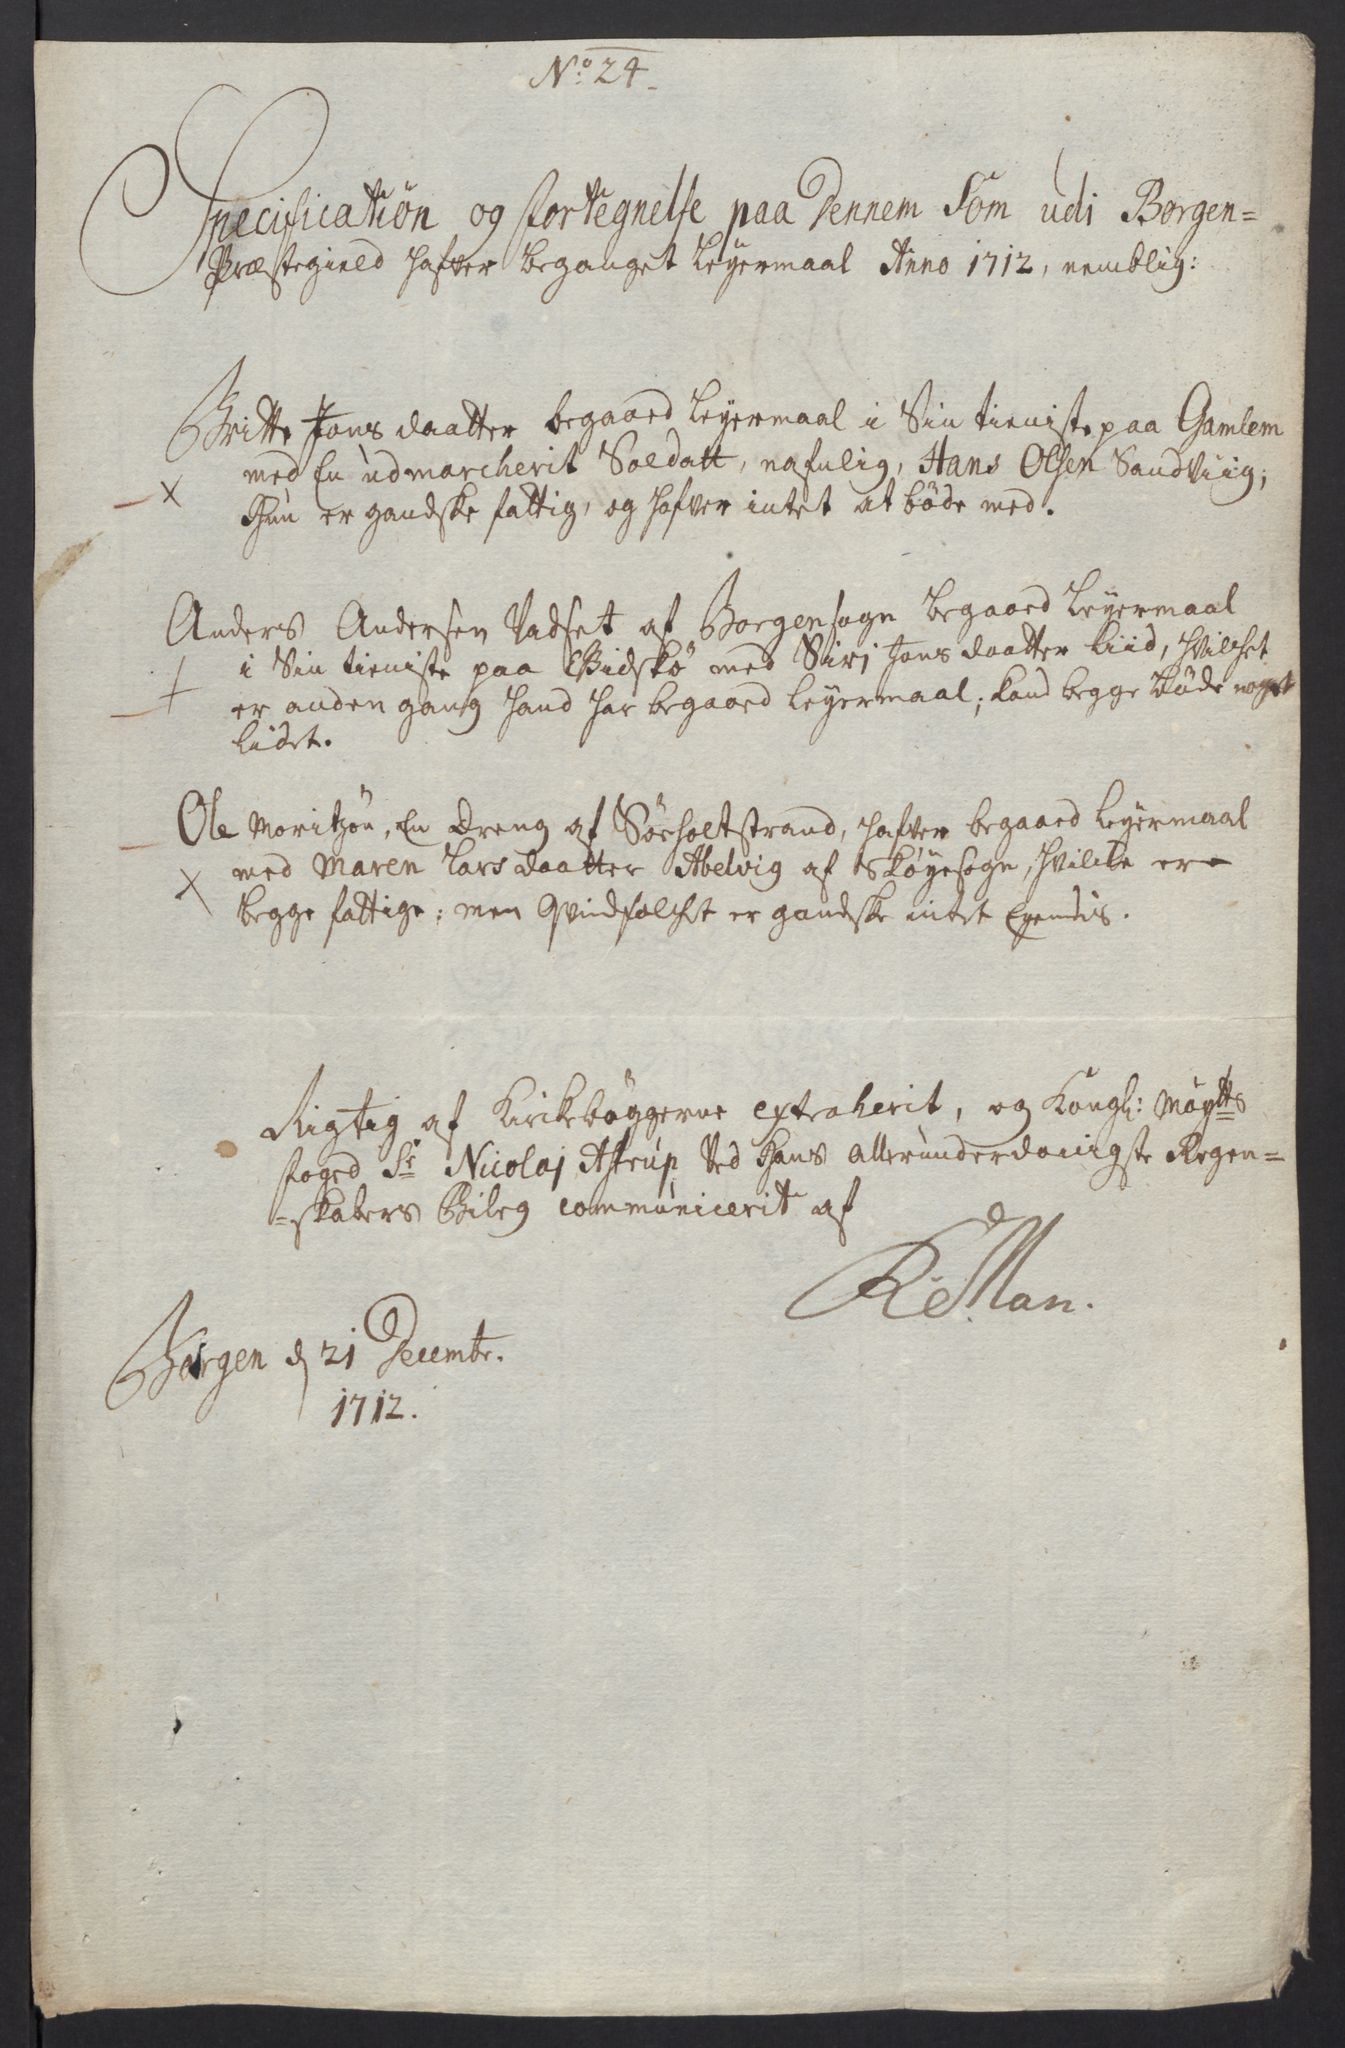 No: 24
Specification og fortegnelse paa Dennem Som udi Borgen=
Præstegield hafver beganget Leyermaal Anno 1712, nemblig:
Britte Jonsdaatter begaaed leyermaal i Sin tieniste paa Gamlem
med En udmarcherit Soldatt, nafnlig, Hans Olsen Sandviig;
x Hun er gandske fattig, og hafver intet at böde med.
Anders Andersen Vadset af Borgensogn begaaed Leyermaal
i Sin tieniste paa Bidskö med Siri Jonsdaatter Liid, hvilchet
+ er anden gang hand har begaaed leyermaal; kand begge böde noget
lidet.
Ole Moritzön, En Dreng af Sörholtstrand, hafver begaaed leyermaal
med Maren Larsdaatter Abelvig af Skøyesogn, hvilcke ere
x begge fattige: men Qvindfolchet er gandske intet Eyendis.
Rigtig af Kirkebøggerne extraherit, og Kongl: Mayts
foged Sr Nicolaj Astrup Ved Hans allerunderdanigste Regen=
=skabers Bileg communicerit af
R: Man.
Borgen d 21 Decembr.
1712.